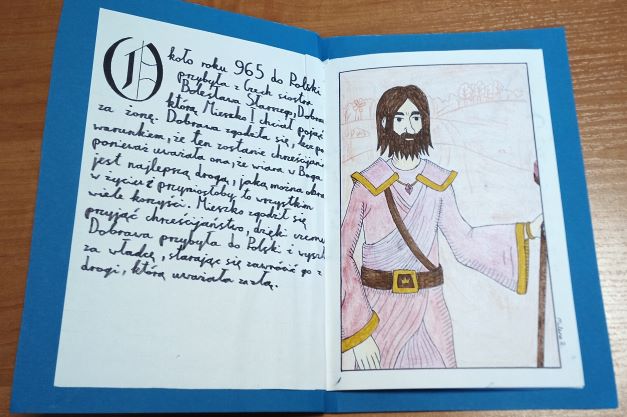 Około roku 965 do Polski
przybyła z Czech siostra
Bolesława Starszego, Dobrawa
którą Mieszko I chciał pojąć
za żonę. Dobrawa zgodziła się, lecz pod
warunkiem, że ten zostanie chrześcijani
ponieważ uważała ona, że wiara w Boga
jest najlepszą drogą, jaką można obra
w życiu i przyniosłoby to wszystkim
wiele korzyści. Mieszko zgodził się
przyjąć chrześcijaństwo, dzięki czemu
Dobrawa przybyła do Polski i wyszł
za władcę, starając się zawrócić go z
drogi, którą uważała za złą.